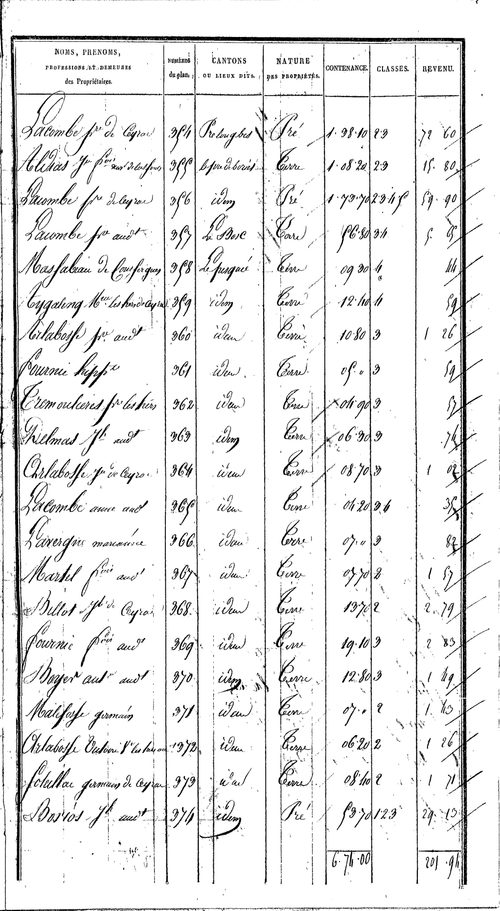 NOMS, PRENOMS, PROFESSIONS, ET DEMEURES des Propriétaires. NUMÉROS du plan. CANTONS OU LIEUX DITS. NATURE DES PROPRIÉTÉS. CONTENANCE. CLASSES. REVENU.
Lacombe pre de Ceyrac 354 Prelongbes Pré 1·38·10 23 72 60
355 Terre 1·08·20 23 15·80
Lacombe pre de Ceyrac 356 idem Pré 1·73·70 2345 59·90
Lacombe pre audt 357 Le Bosc Terre 56·80 34 5
Massabiau de 358 Terre 09·30 4 44
359 idem Terre 12·40 4 59
Arlabosse pre audt 360 idem Terre 10·80 3 1 26
Fournié 361 idem Terre 05·0 3 59
Tremoulieres pre 362 idem Terre 04·90 3 57
Delmas Jh audt 363 idem Terre 06·30 3 74
Arlabosse de Ceyrac 364 idem Terre 08·70 3 1 02
Lacombe anne audt 365 idem Terre 04·20 34 35
Lavergne 366 idem Terre 07·0 3 82
Martel audt 367 idem Terre 07·70 2 1 57
Billot Jh de Ceyrac 368 idem Terre 13·70 2 2·79
Fournié audt 369 idem Terre 19·10 3 2 83
Boyer antne audt 370 idem Terre 12·80 3 1 49
Malifosse germain 371 idem Terre 07·0 2 1·43
Arlabosse 372 idem Terre 06·20 2 1 26
germain de Ceyrac 373 idem Terre 08·40 2 1 71
Bories Jh audt 374 idem Pré 53·70 123 29·13
6·74·00 201·94